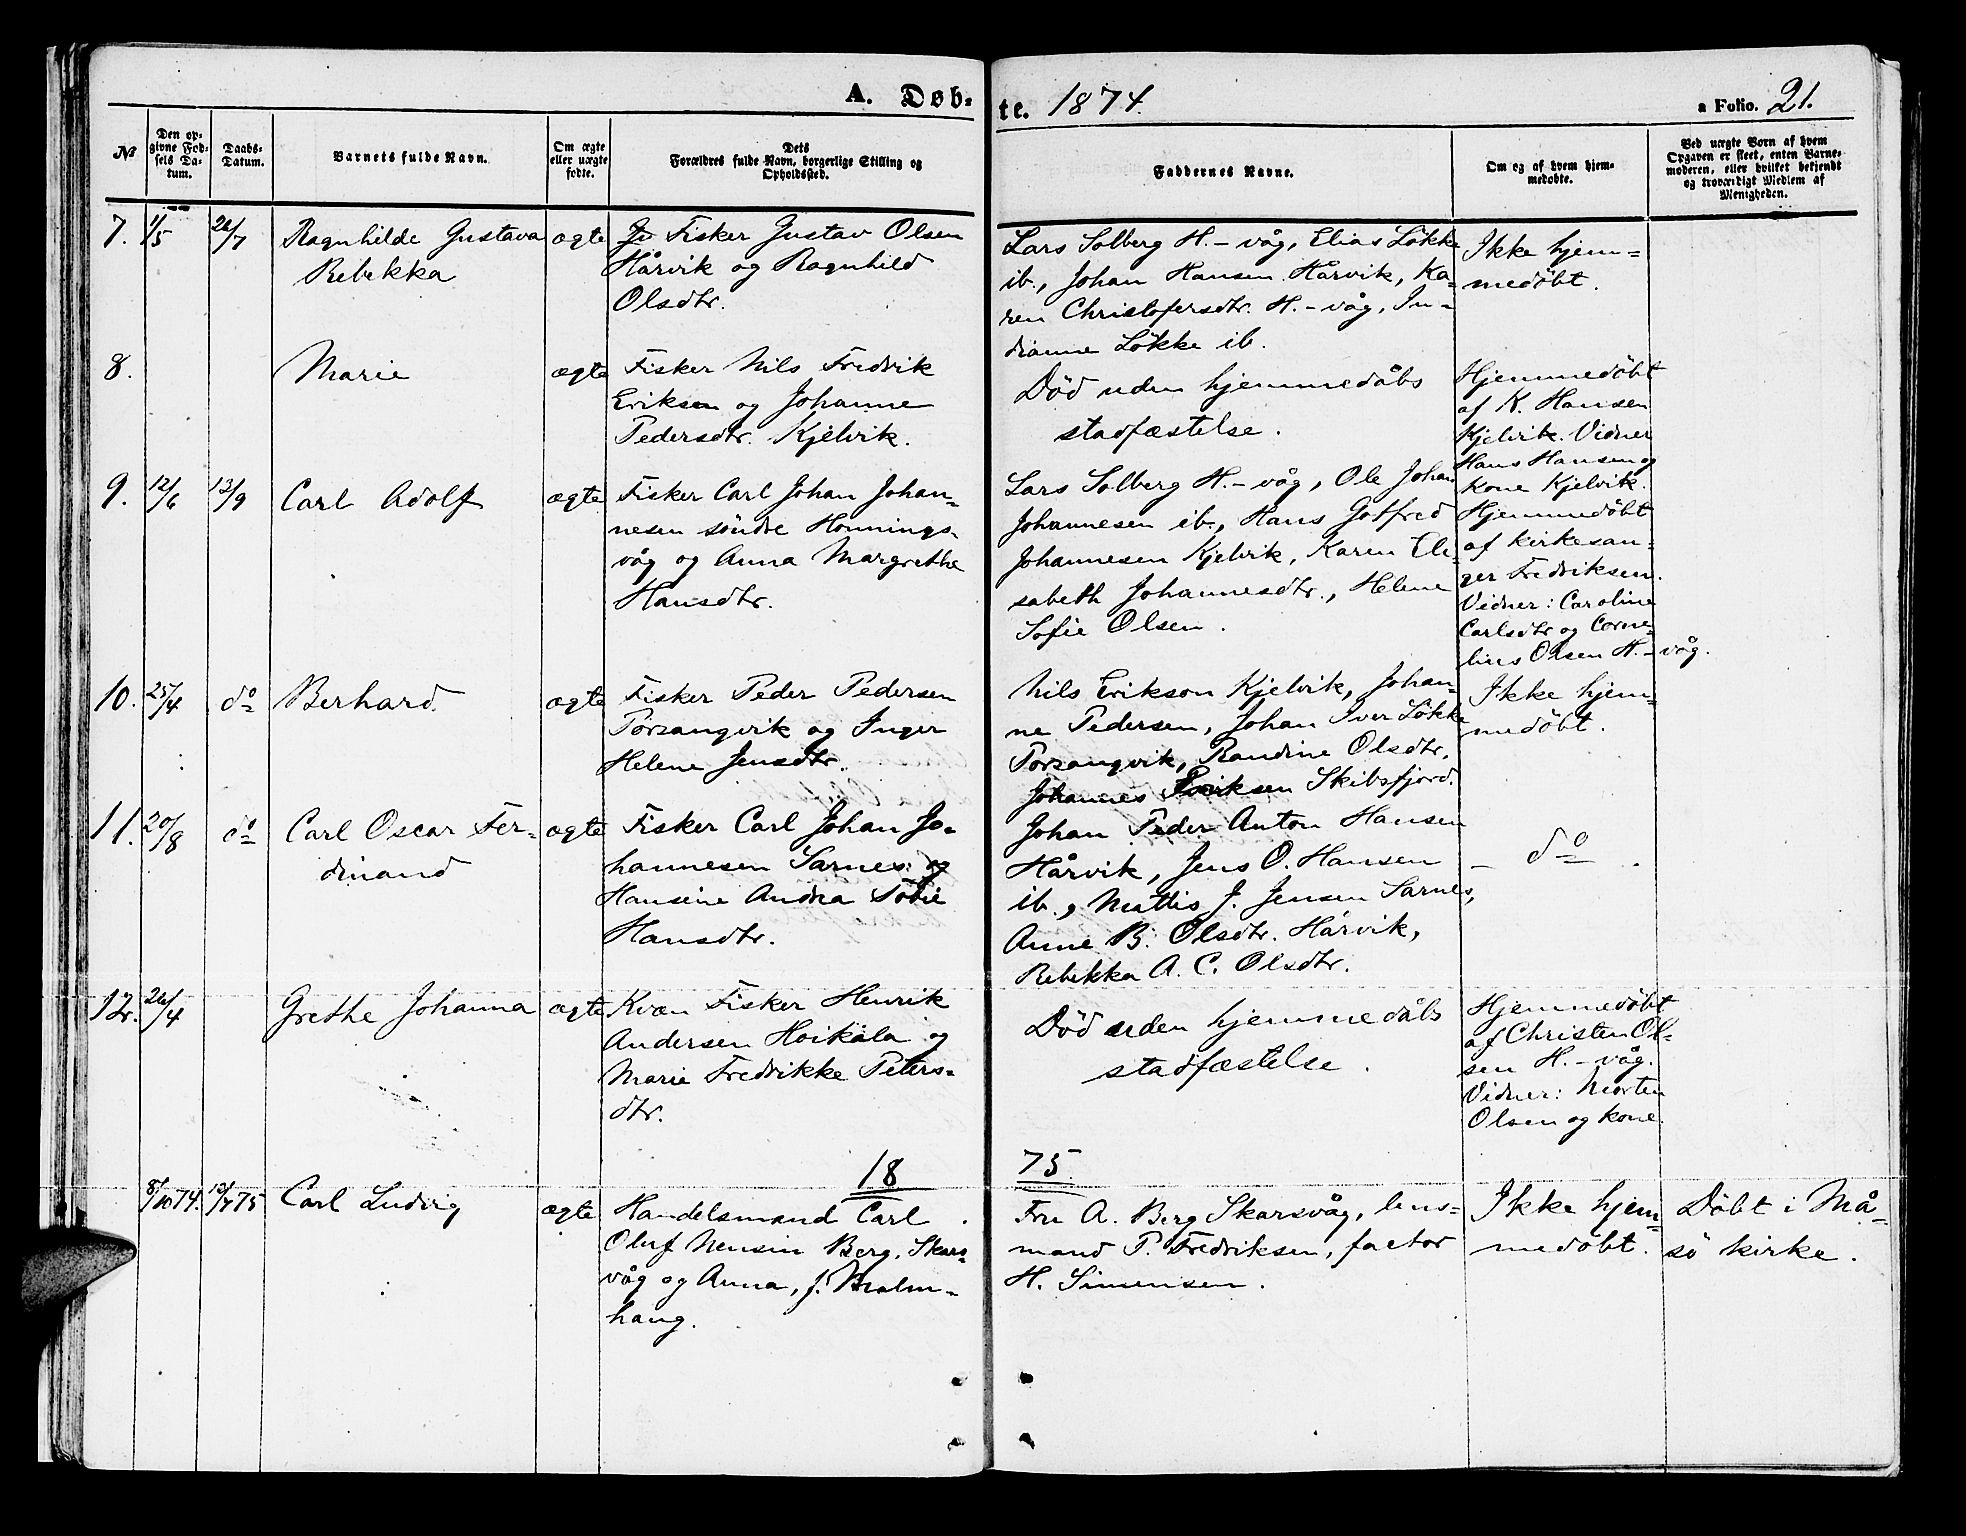 A. Døb-
te. 1874.
a Folio. 21.
No
Den op-
givne Fød-
sels Da-
tum.
Daabs-
Datum.
Barnets fulde Navn.
Om ægte
eller uægte
fødte.
Dets
Forældres fulde Navn, borgerlige Stilling og
Opholdssted.
Faddernes Navne.
Om og af hvem hjem-
medøbte.
Ved uægte Børn af hvem
Opgaven er skeet, enten Barne-
moderen, eller hvilket bekjendt
og troværdigt Medlem af
Menigheden.
7. 1/5 26/7 Ragnhilde Gustava
Rebekka
ægte
Fisker Gustav Olsen
Hårvik og Ragnhild
Olsdtr.
Lars Solberg H.-våg, Elias Løkke
ib., Johan Hansen Hårvik, Ka-
ren Christofersdtr. H.-våg, In-
dianne Løkke ib.
Ikke hjem-
medöbt.
8. Marie
ægte
Fisker Nils Fredrik
Eriksen og Johanne
Pedersdtr. Kjelvik.
Död uden hjemmedåbs
stadfæstelse.
Hjemmedöbt
af K. Hansen
Kjelvik. Vidner
Hans Hansen og
kone Kjelvik.
9. 12/6 13/9 Carl Adolf
ægte
Fisker Carl Johan Johan-
nesen söndre Honnings-
våg og Anna Margrethe
Hansdtr.
Lars Solberg H.-våg, Ole Johan
Johannesen ib., Hans Gotfred
Johannesen Kjelvik, Karen Eli-
sabeth Johannesdtr., Helene
Sofie Olsen.
Hjemmedöbt
af kirkesan-
ger Fredriksen.
Vidner: Caroline
Carlsdtr og Corne-
lius Olsen H.-våg.
10. 25/4 do Berhard
ægte
Fisker Peder Pedersen
Porsangvik og Inger
Helene Jensdtr.
Nils Erikson Kjelvik, Johan-
ne Pedersen, Johan Iver Løkke
Porsangvik, Randine Olsdtr.
Johannes Eriksen Skibsfjord.
Ikke hjem-
medöbt.
11. 20/8 do Carl Oscar Fer-
dinand
ægte
Fisker Carl Johan Jo-
hannesen Sarnes og
Hansine Andrea Tobie
Hansdtr.
Johan Peder Anton Hansen
Hårvik, Jens O. Hansen
ib., Mattis J. Jensen Sarnes,
Anne B. Olsdtr. Hårvik,
Rebekka A. C. Olsdtr.
- do - .
12. 26/4 Grethe Johanna
ægte
Kvæn Fisker Henrik
Andersen Hoikala og
Marie Fredrikke Peters-
dtr.
Död uden hjemmedåbs
stadfæstelse.
Hjemmedöbt
af Christen Ol-
sen H.-våg.
Vidner: Morten
Olsen og kone
18
75.
8/10 74. 13/7 75 Carl Ludvig
ægte
Handelsmand Carl
Oluf Nensin Berg, Skars-
våg og Anna, f. Malm-
haug.
Fru A. Berg Skarsvåg, lens-
mand P. Fredriksen, factor
H. Simensen.
Ikke hjem-
medöbt.
Döbt i Må-
sö kirke.